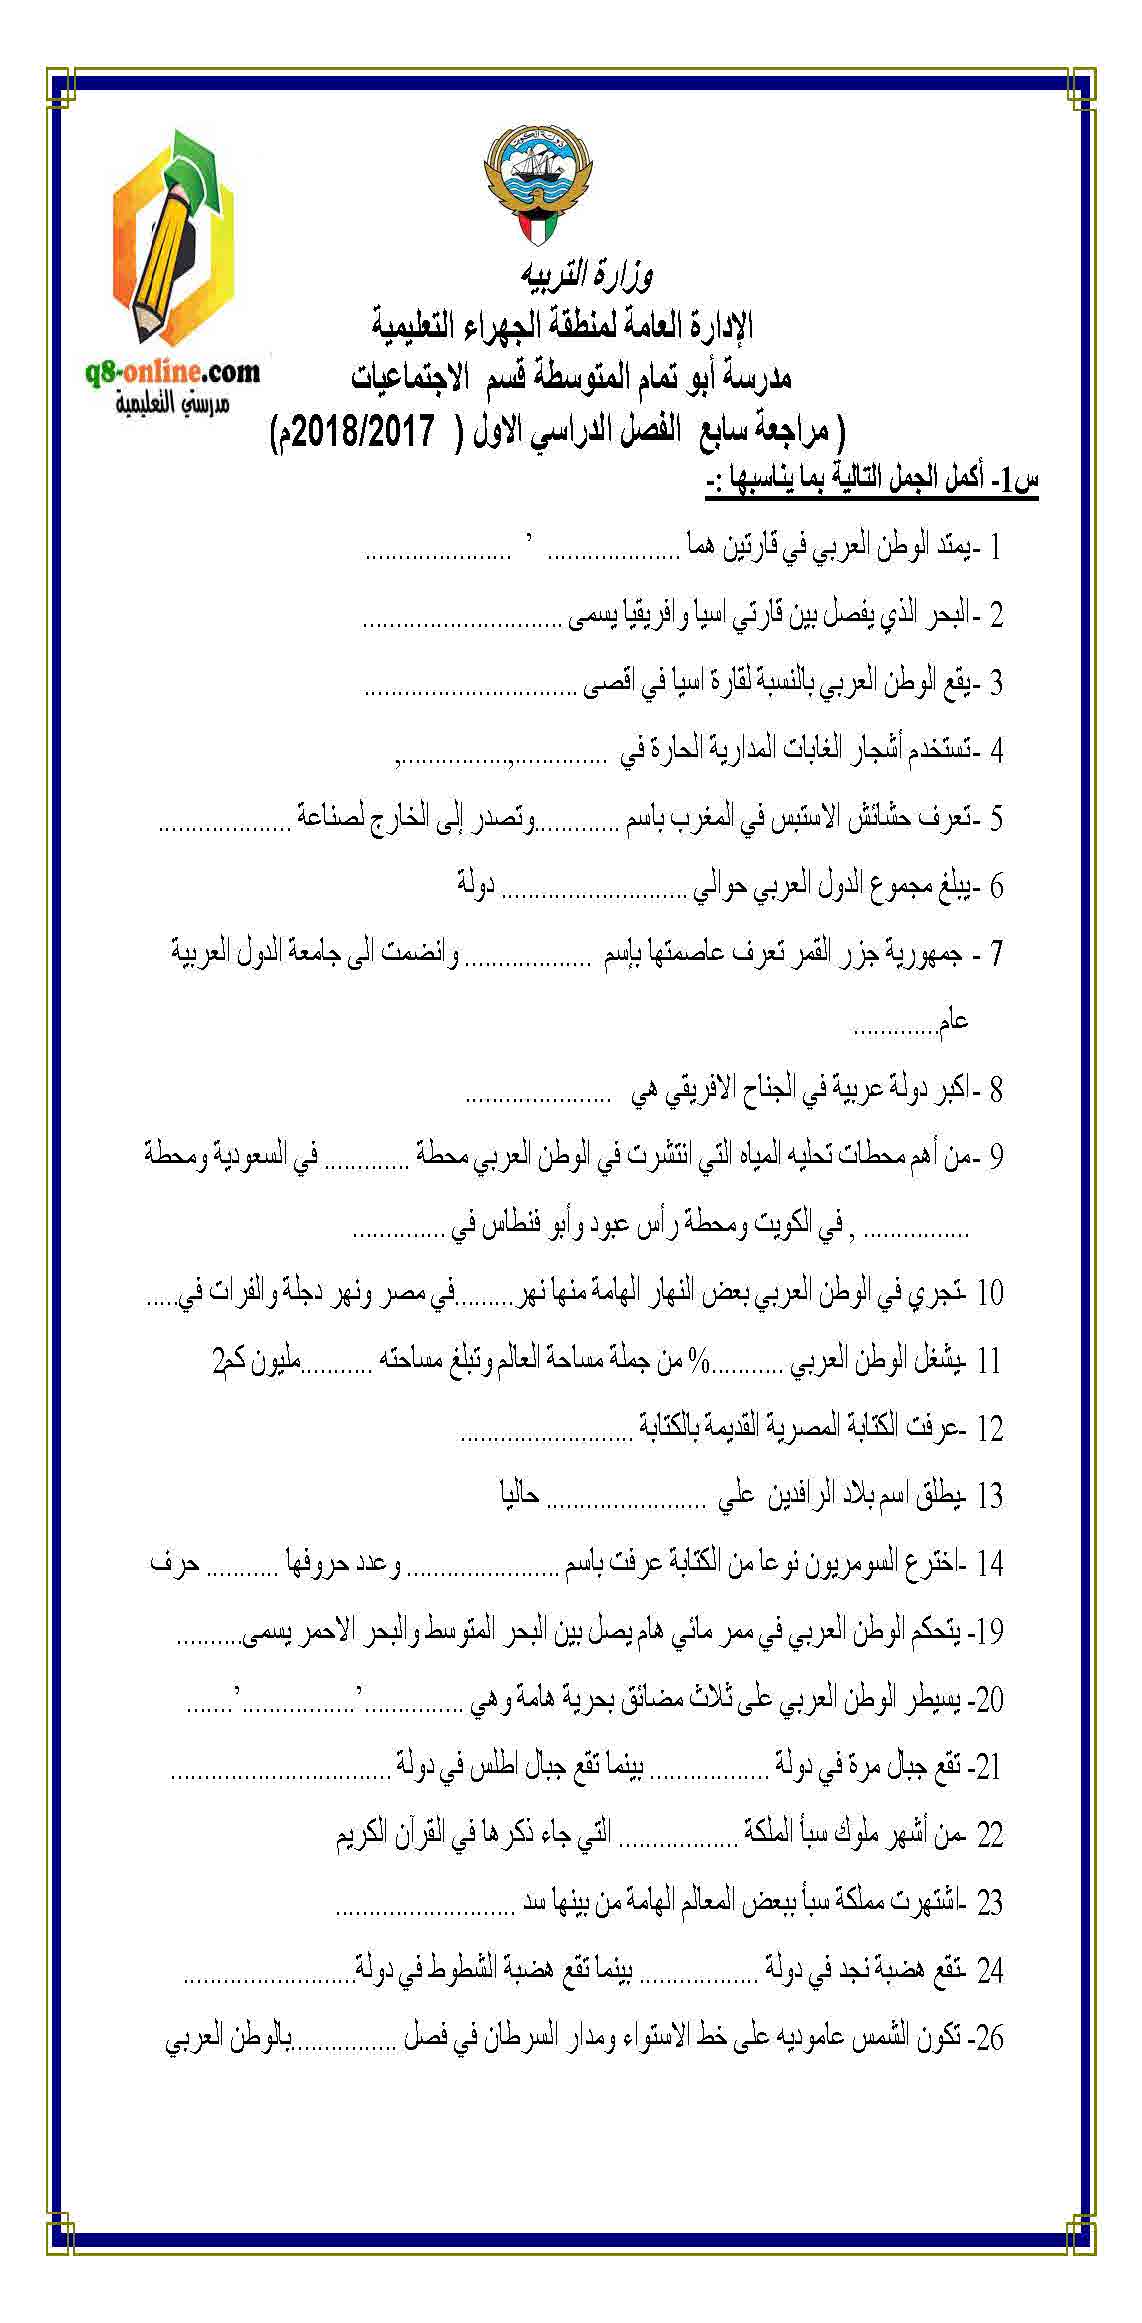 دولة الكويت
q8-online.com
مدرستي التعليمية
وزارة التربيه
الإدارة العامة لمنطقة الجهراء التعليمية
مدرسة أبو تمام المتوسطة قسم الاجتماعيات
( مراجعة سابع الفصل الدراسي الاول ( 2018/2017م)
س1- أكمل الجمل التالية بما يناسبها :-
1 -يمتد الوطن العربي في قارتين هما .................... ’ ......................
2 -البحر الذي يفصل بين قارتي اسيا وافريقيا يسمى ..............................
3 -يقع الوطن العربي بالنسبة لقارة اسيا في اقصى ................................
4 -تستخدم أشجار الغابات المدارية الحارة في ..............,................,
5 -تعرف حشائش الاستبس في المغرب باسم .............وتصدر إلى الخارج لصناعة ....................
6 -يبلغ مجموع الدول العربي حوالي ............................ دولة
7 - جمهورية جزر القمر تعرف عاصمتها بإسم ................... وانضمت الى جامعة الدول العربية
عام.............
8 -اكبر دولة عربية في الجناح الافريقي هي ......................
9 -من أهم محطات تحليه المياه التي انتشرت في الوطن العربي محطة ............. في السعودية ومحطة
................ , في الكويت ومحطة رأس عبود وأبو فنطاس في ..............
10 -تجري في الوطن العربي بعض النهار الهامة منها نهر.........في مصر ونهر دجلة والفرات في.....
11 -يشغل الوطن العربي ...........% من جملة مساحة العالم وتبلغ مساحته ...........مليون كم2
12 -عرفت الكتابة المصرية القديمة بالكتابة ..........................
13 -يطلق اسم بلاد الرافدين علي ........................ حاليا
14 -اخترع السومريون نوعا من الكتابة عرفت باسم ....................... وعدد حروفها ........... حرف
19- يتحكم الوطن العربي في ممر مائي هام يصل بين البحر المتوسط والبحر الاحمر يسمى..........
20- يسيطر الوطن العربي على ثلاث مضائق بحرية هامة وهي ...............’.................’.......
21- تقع جبال مرة في دولة .................. بينما تقع جبال اطلس في دولة .................................
22 -من أشهر ملوك سبأ الملكة .................. التي جاء ذكرها في القرآن الكريم
23 -اشتهرت مملكة سبأ ببعض المعالم الهامة من بينها سد ...........................
24 -تقع هضبة نجد في دولة .................. بينما تقع هضبة الشطوط في دولة..........................
26- تكون الشمس عاموديه على خط الاستواء ومدار السرطان في فصل ................بالوطن العربي